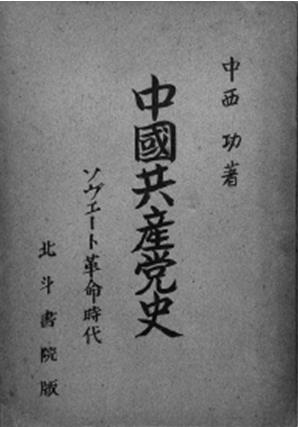 中西 功著
中國共産党史
ソヴエート革命時代
北斗書院版